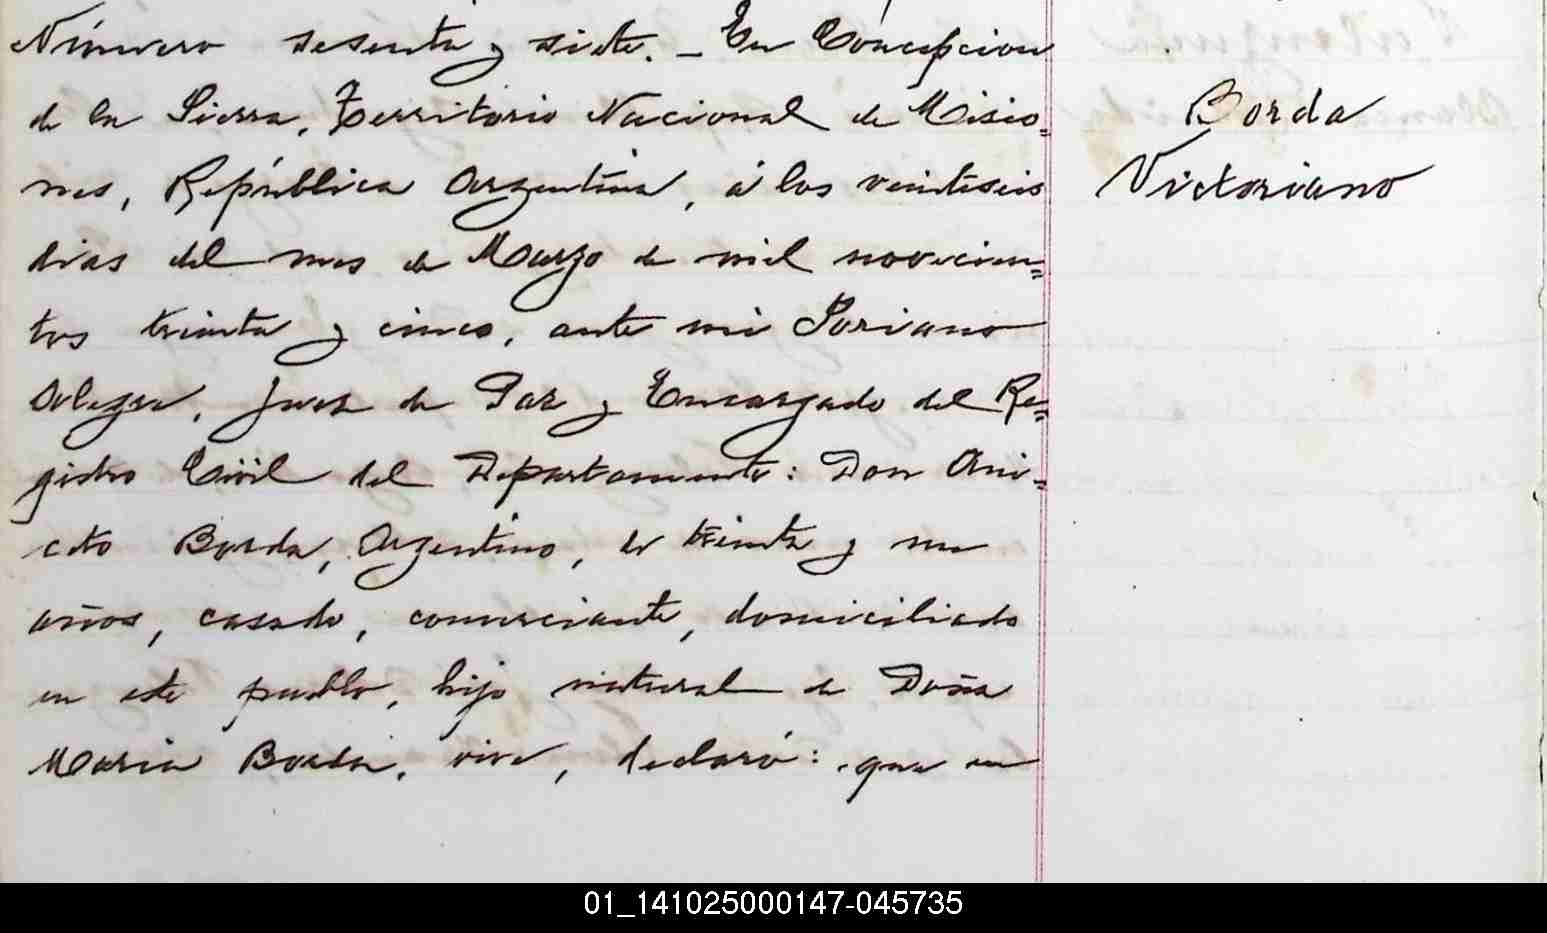 Número sesenta y siete. - En Concepcion
de la Sierra, Territorio Nacional de Misio=
nes, República Argentina, á los veintiseis
dias del mes de Marzo de mil novecien=
tos treinta y cinco, ante mi Soriano
Alegre, Juez de Paz y Encargado del Re=
gistro Civil del Departamento: Don Ani=
ceto Borda, Argentino, de treinta y un
años, casado, comerciante, domiciliado
en este pueblo, hijo natural de Doña
Maria Borda, vive, declaró: que en
Borda
Victoriano
01_141025000147-045735